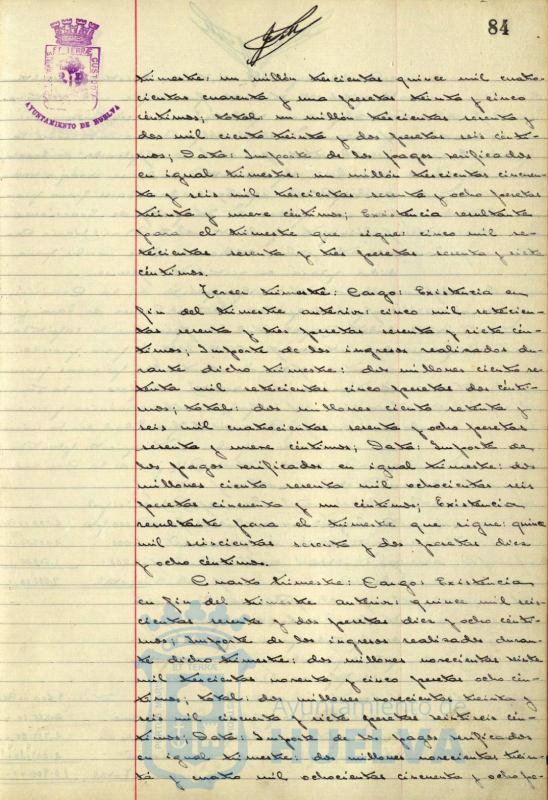 84
AYUNTAMIENTO DE HUELVA
trimestre: un millón trescientas quince mil cuatro-
cientas cuarenta y una pesetas treinta y cinco
céntimos; total: un millón trescientas sesenta y
dos mil ciento treinta y dos pesetas seis cénti-
mos; Data: Importe de los pagos verificados
en igual trimestre: un millón trescientas cincuen-
ta y seis mil trescientas sesenta y ocho pesetas
treinta y nueve céntimos; Existencia resultante
para el trimestre que sigue: cinco mil se-
tecientas sesenta y tres pesetas sesenta y siete
céntimos.
Tercer trimestre: Cargo: Existencia en
fin del trimestre anterior: cinco mil setecien-
tas sesenta y tres pesetas sesenta y siete cén-
timos; Importe de los ingresos realizados du-
rante dicho trimestre: dos millones ciento se-
tenta mil setecientas cinco pesetas dos cénti-
mos; total: dos millones ciento setenta y
seis mil cuatrocientas sesenta y ocho pesetas
sesenta y nueve céntimos; Data: Importe de
los pagos verificados en igual trimestre: dos
millones ciento sesenta mil ochocientas seis
pesetas cincuenta y un céntimos; Existencia
resultante para el trimestre que sigue: quince
mil seiscientas sesenta y dos pesetas diez
y ocho céntimos.
Cuarto trimestre: Cargo: Existencia
en fin del trimestre anterior: quince mil seis-
cientas sesenta y dos pesetas diez y ocho cénti-
mos; Importe de los ingresos realizados duran-
te dicho trimestre: dos millones novecientas veinte
mil trescientas noventa y cinco pesetas ocho cén-
timos; total: dos millones novecientas treinta y
seis mil cincuenta y siete pesetas veintiseis cén-
timos; Data: Importe de los pagos verificados
en igual trimestre: dos millones novecientas trein-
ta y cuatro mil ochocientas cincuenta y ocho pe-
Ayuntamiento de
HUELVA